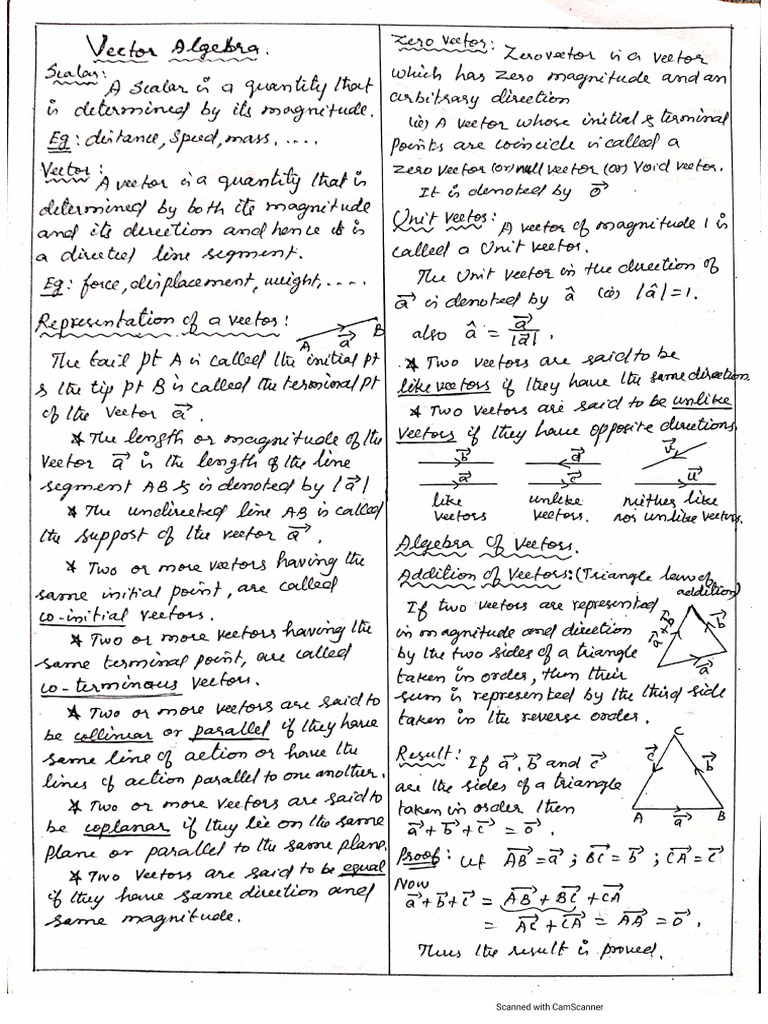 Vector Algebra.
Scalar:
A Scalar is a quantity that
is determined by its magnitude.
Eg: distance, Speed, mass, ....
Vector:
A vector is a quantity that is
determined by both its magnitude
and its direction and hence it is
a directed line segment.
Eg: force, displacement, weight, ....
Representation of a vector:
A a⃗ B
The tail pt A is called the initial pt
& the tip pt B is called the terminal pt
of the vector a⃗.
* The length or magnitude of the
vector a⃗ is the length of the line
segment AB & is denoted by |a⃗|
* The undirected line AB is called
the support of the vector a⃗.
* Two or more vectors having the
same initial point, are called
co-initial vectors.
* Two or more vectors having the
same terminal point, are called
co-terminous vectors.
* Two or more vectors are said to
be collinear or parallel if they have
same line of action or have the
lines of action parallel to one another.
* Two or more vectors are said to
be coplanar if they lie on the same
plane or parallel to the same plane.
* Two vectors are said to be equal
if they have same direction and
same magnitude.
Zero vector: Zero vector is a vector
which has zero magnitude and an
arbitrary direction
(ie) A vector whose initial & terminal
points are coincide is called a
zero vector (or) null vector (or) Void vector.
It is denoted by o⃗
Unit vector: A vector of magnitude 1 is
called a Unit vector.
The Unit vector in the direction of
a⃗ is denoted by â (ie) |â| = 1.
also â = a⃗/|a⃗|.
* Two vectors are said to be
like vectors if they have the same direction.
* Two vectors are said to be unlike
vectors if they have opposite directions.
b⃗ d⃗ v⃗
a⃗ c⃗ u⃗
like unlike neither like
vectors vectors. nor unlike vectors.
Algebra of vectors.
Addition of Vectors: (Triangle law of
addition)
If two vectors are represented
in magnitude and direction
by the two sides of a triangle
taken in order, then their
sum is represented by the third side
taken in the reverse order.
a⃗+b⃗ b⃗
a⃗
Result: If a⃗, b⃗ and c⃗
are the sides of a triangle
taken in order then
a⃗ + b⃗ + c⃗ = o⃗.
C
c⃗ b⃗
A a⃗ B
Proof: Let AB⃗ = a⃗ ; BC⃗ = b⃗ ; CA⃗ = c⃗
Now
a⃗ + b⃗ + c⃗ = AB⃗ + BC⃗ + CA⃗
= AC⃗ + CA⃗ = AA⃗ = o⃗.
Thus the result is proved.
Scanned with CamScanner